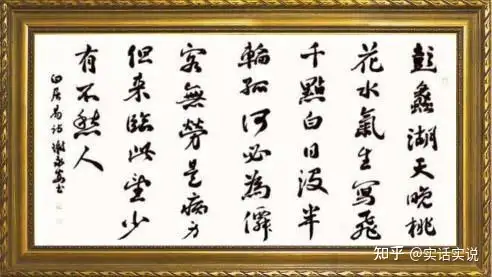 彭蠡湖天晚桃
花水氣生飛
千點白日没半
輪孤何必為
客無勞是病方
但来臨此望少
有不愁人
白居易诗
知乎 @实话实说